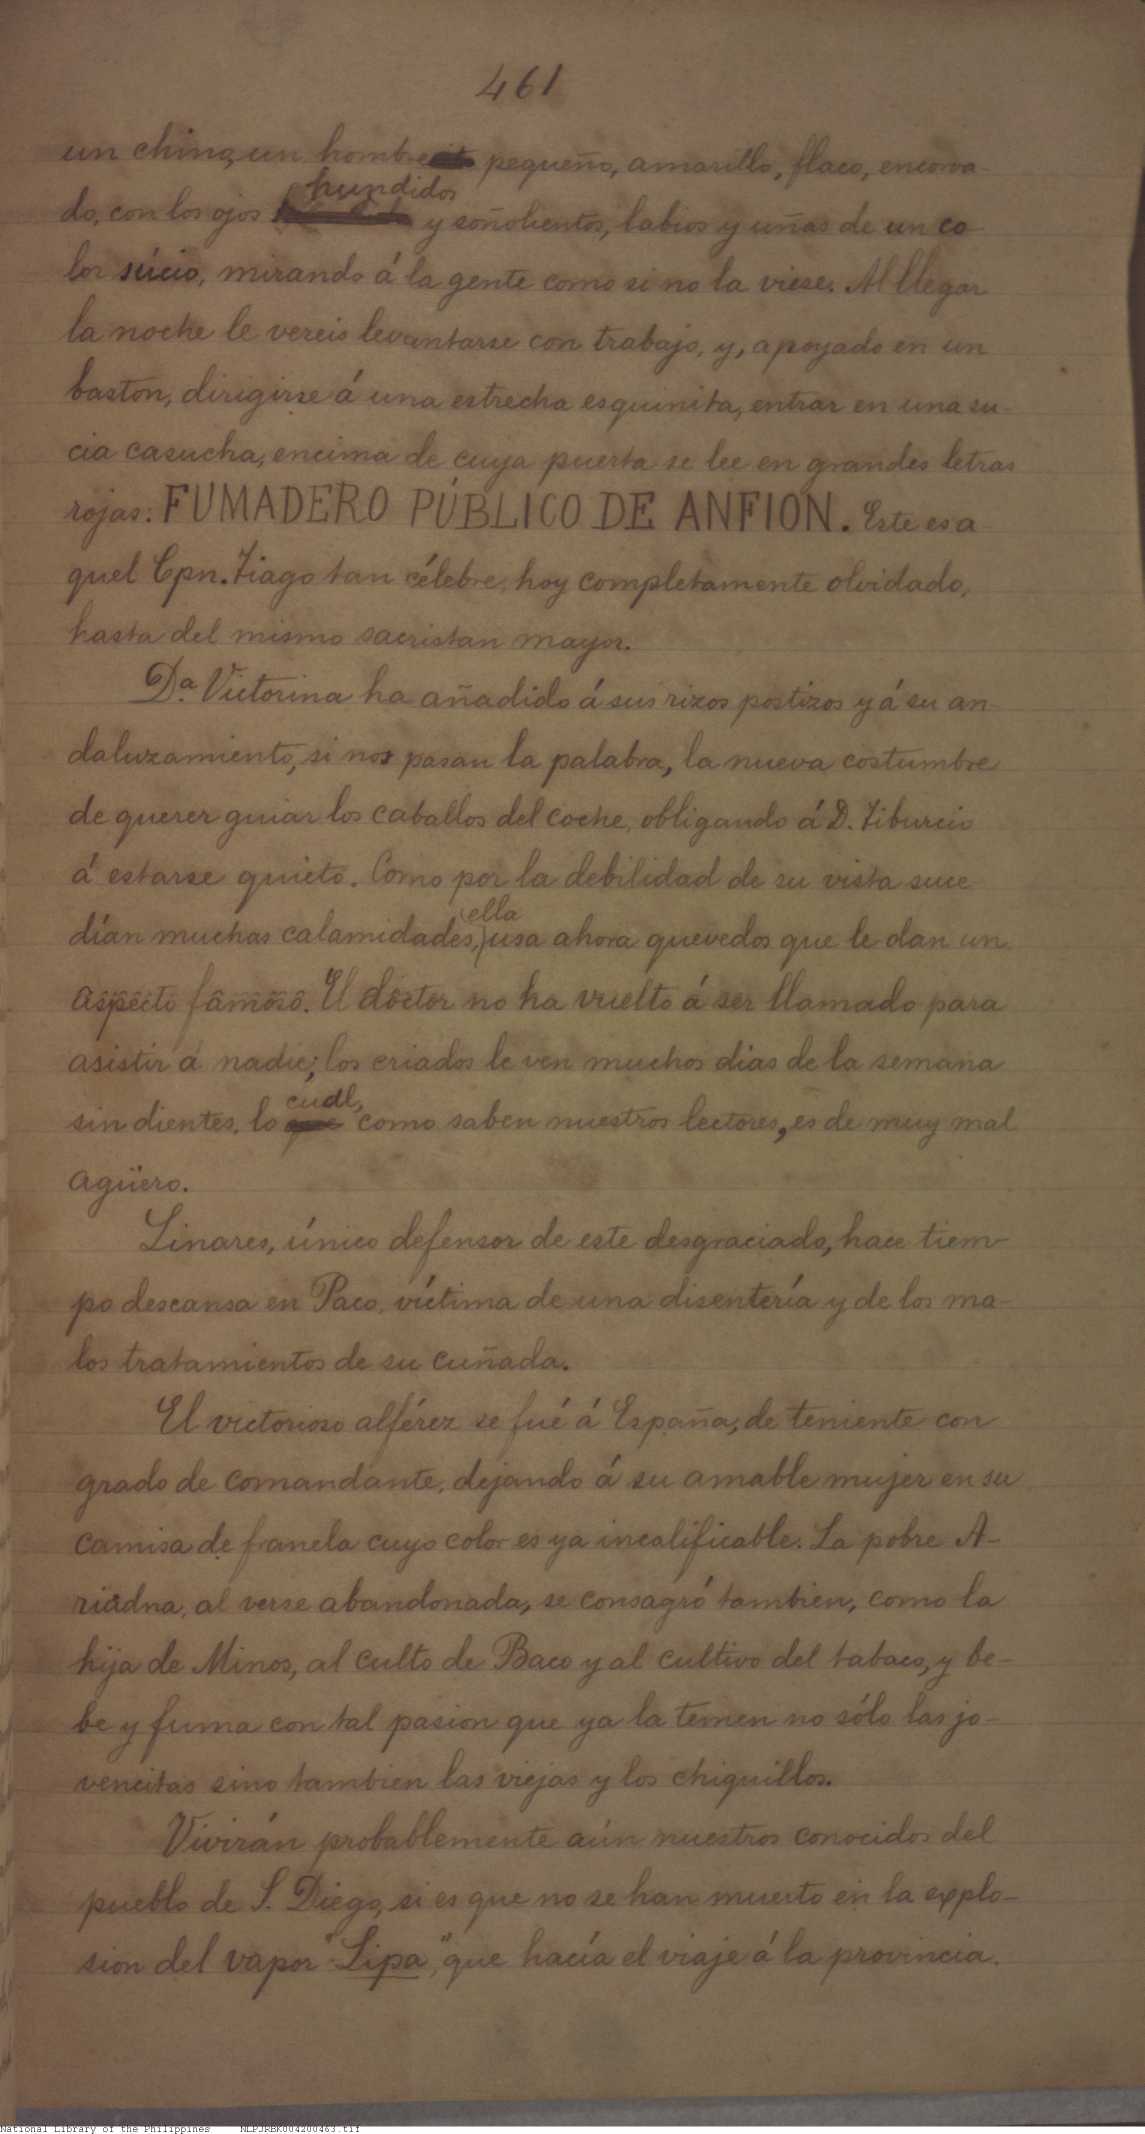 461
un chino, un hombre pequeño, amarillo, flaco, encorva-
do, con los ojos hundidos y soñolientos, labios y uñas de un co-
lor súcio, mirando á la gente como si no la viese. Al llegar
la noche le vereis levantarse con trabajo, y, apoyado en un
baston, dirigirse á una estrecha esquinita, entrar en una su-
cia casucha, encima de cuya puerta se lee en grandes letras
rojas: FUMADERO PÚBLICO DE ANFION. Este es a-
quel Cpn. Tiago tan célebre, hoy completamente olvidado,
hasta del mismo sacristan mayor.
Da. Victorina ha añadido á sus rizos postizos y á su an-
daluzamiento, si nos pasan la palabra, la nueva costumbre
de querer guiar los caballos del coche, obligando á D. Tiburcio
á estarse quieto. Como por la debilidad de su vista suce-
dían muchas calamidades, ella usa ahora quevedos que le dan un
aspecto famoso. El doctor no ha vuelto á ser llamado para
asistir á nadie; los criados le ven muchos dias de la semana
sin dientes, lo cual, como saben nuestros lectores, es de muy mal
agüero.
Linares, único defensor de este desgraciado, hace tiem-
po descansa en Paco, víctima de una disentería y de los ma-
los tratamientos de su cuñada.
El victorioso alférez se fué á España, de teniente con
grado de comandante, dejando á su amable mujer en su
camisa de franela cuyo color es ya incalificable. La pobre A-
riadna, al verse abandonada, se consagró tambien, como la
hija de Minos, al culto de Baco y al cultivo del tabaco, y be-
be y fuma con tal pasion que ya la temen no sólo las jo-
vencitas sino tambien las viejas y los chiquillos.
Vivirán probablemente aún nuestros conocidos del
pueblo de S. Diego, si es que no se han muerto en la explo-
sion del vapor "Lipa", que hacía el viaje á la provincia.
National Library of the Philippines NLPJRBK004200463.tif